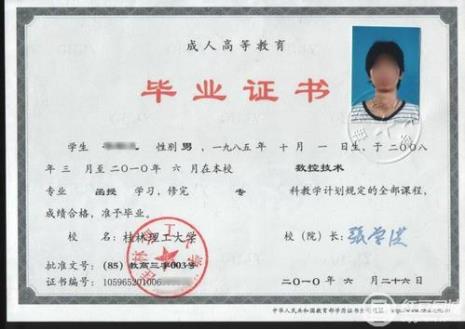 成人高等教育
毕业证书
学生 性别 男，一九八五年 十 月 一 日生，于二〇〇八
年 三 月至二〇一〇年 六 月在本校 数控技术
专业 函授 学习，修完 专 科教学计划规定的全部课程，
成绩合格，准予毕业。
校 名：桂林理工大学 校（院）长：
批准文号：(85) 教高三字003号
证书编号：105965201006 二〇一〇年 六 月 二十六日